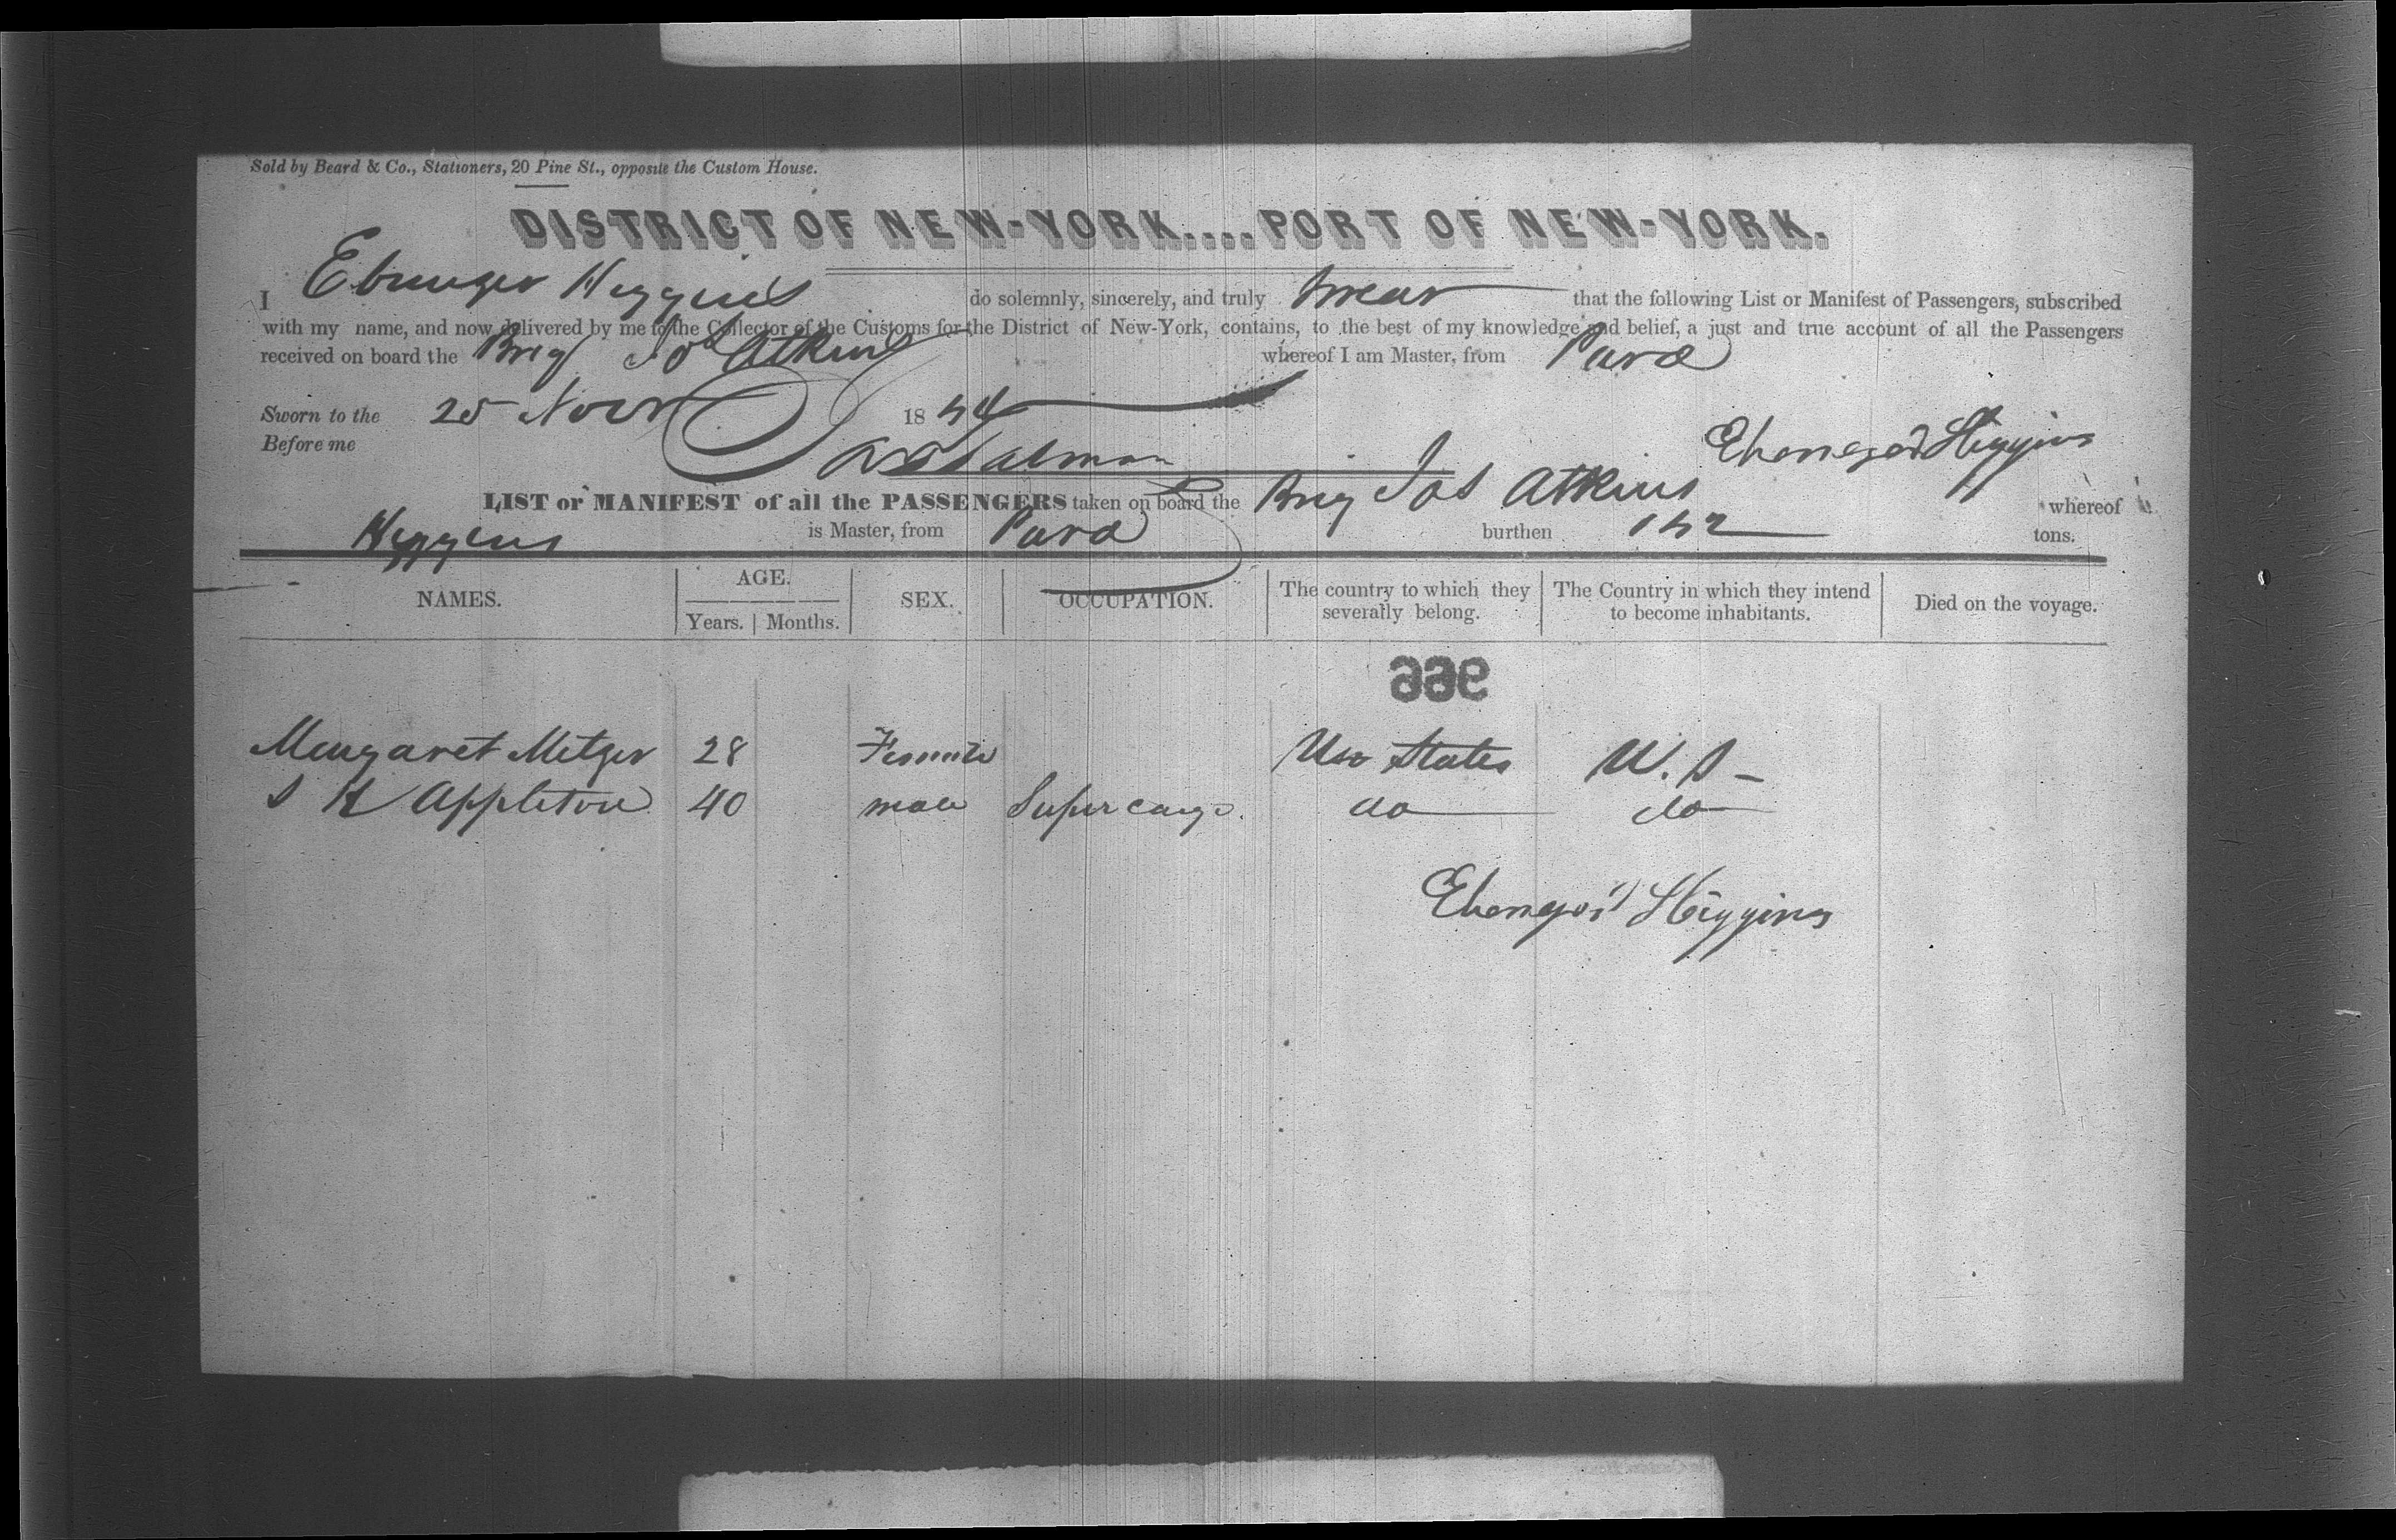 Sold by Beard & Co., Stationers, 20 Pine St., opposite the Custom House.
DISTRICT OF NEW-YORK....PORT OF NEW-YORK.
I Ebenezer Higgins do solemnly, sincerely, and truly swear that the following List or Manifest of Passengers, subscribed
with my name, and now delivered by me to the Collector of the Customs for the District of New-York, contains, to the best of my knowledge and belief, a just and true account of all the Passengers
received on board the Brig Jos Atkins whereof I am Master, from Para
Sworn to the 25 Novr 1854
Before me
Ebenezer Higgins
LIST or MANIFEST of all the PASSENGERS taken on board the Brig Jos Atkins whereof
Higgins is Master, from Para burthen 152 tons.
NAMES. AGE. Years. Months. SEX. OCCUPATION. The country to which they severally belong. The Country in which they intend to become inhabitants. Died on the voyage.
966
Margaret Metzer 28 Female States U.S-
S H Appleton 40 male Supercargo. do do
Ebenezer Higgins